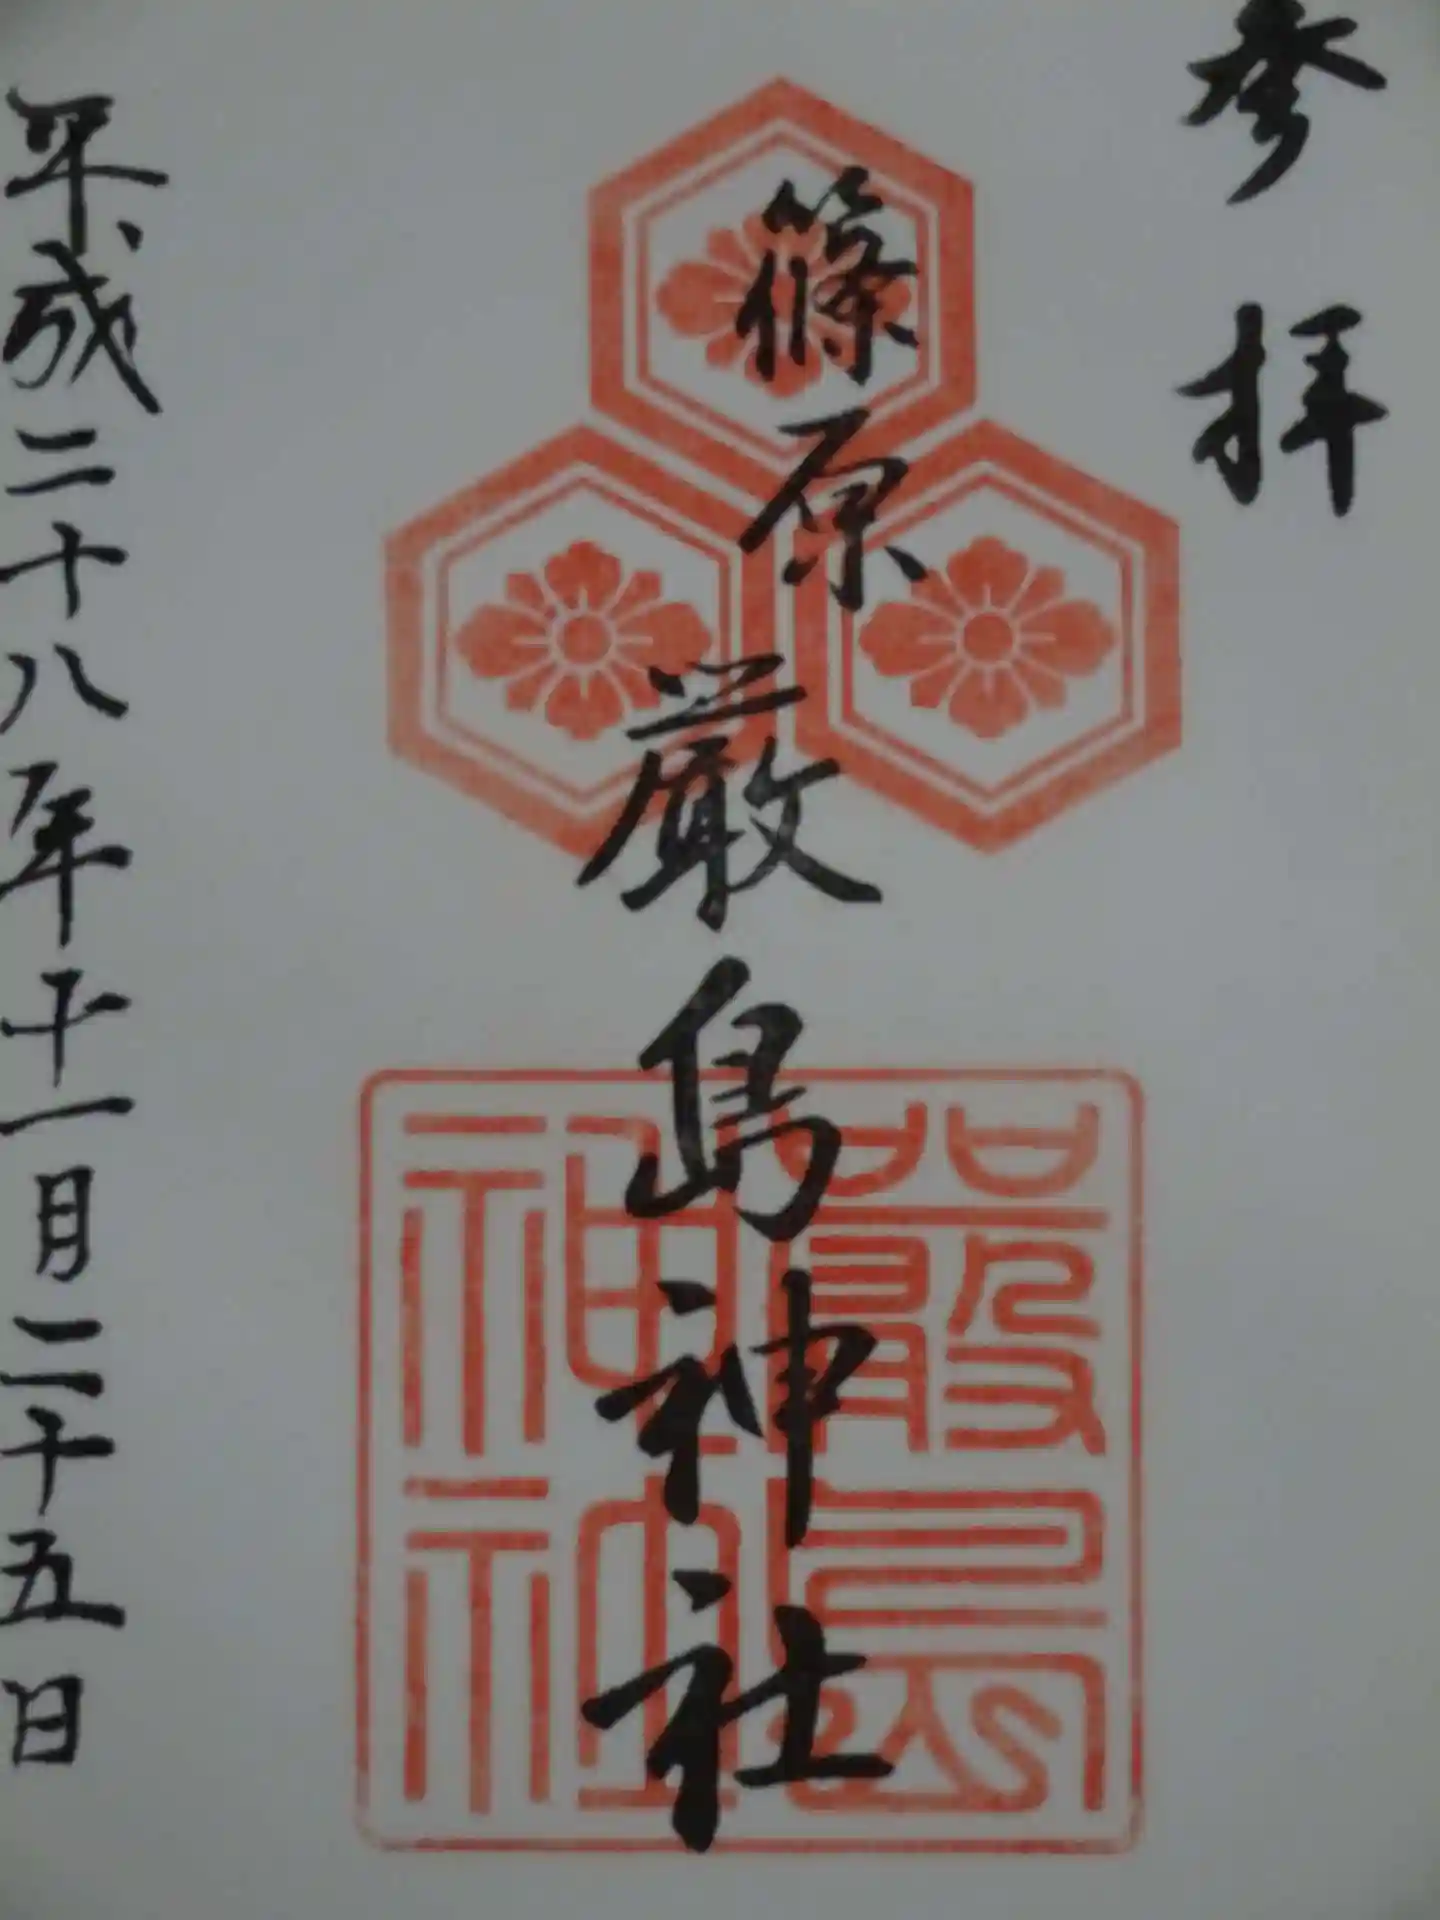 参拝
篠原
厳島神社
平成二十八年十一月二十五日
嚴島
神社